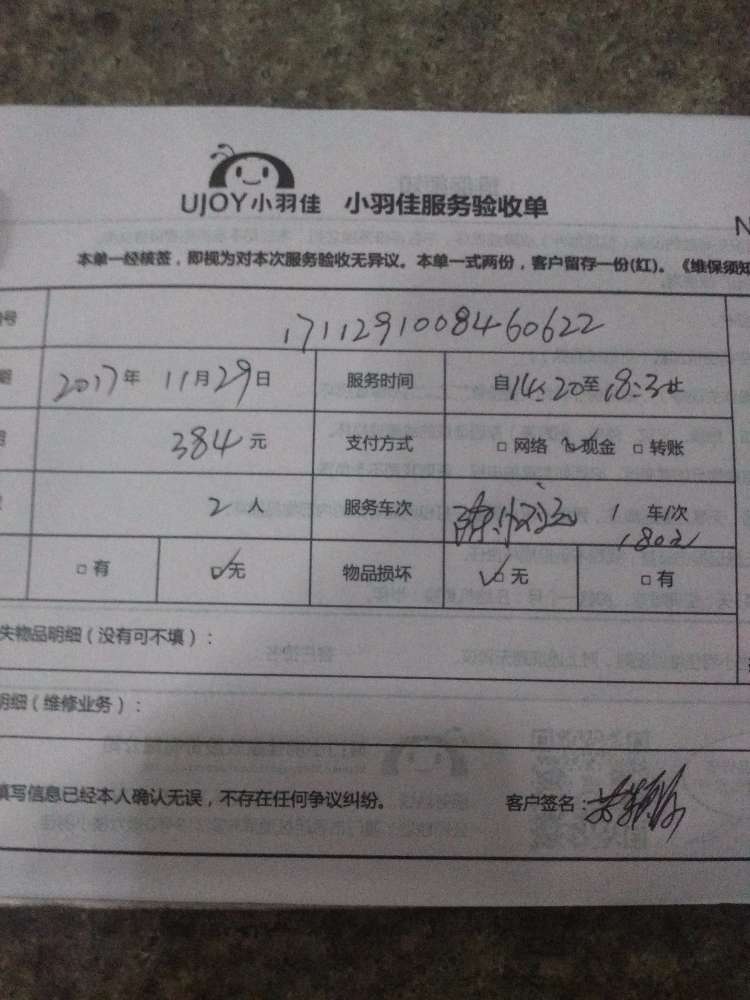 UJOY小羽佳 小羽佳服务验收单
N
本单一经核签，即视为对本次服务验收无异议。本单一式两份，客户留存一份(红)。《维保须知
号 1711291008460622
期 2017年 11月29日 服务时间 自14:20至18:3止
384元 支付方式 □网络 □现金 □转账
2人 服务车次 1车/次
180元
□有 □无 物品损坏 □无 □有
失物品明细（没有可不填）：
明细（维修业务）：
填写信息已经本人确认无误，不存在任何争议纠纷。 客户签名：